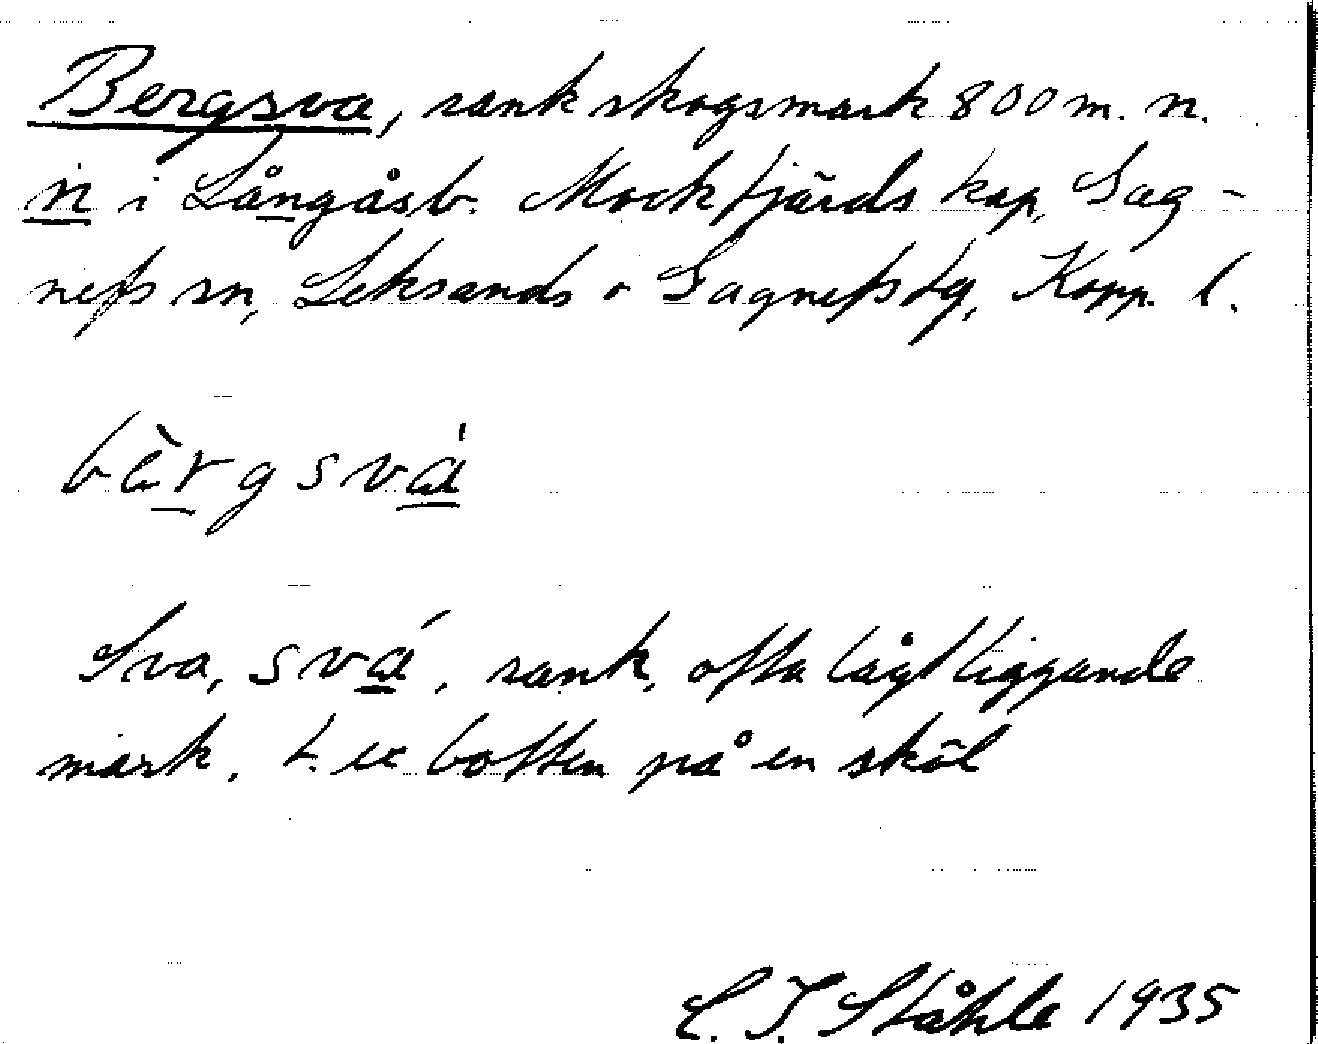 Bergsva, sank skogsmark 800 m. n.
n i Långåsb. Mockfjärds kap, Gag-
nefs sn, Leksands o Gagnefs tg, Kopp. l.
bèrgsvá
Sva, svá, sank, ofta lågt liggande
mark, t. ex botten på en skål
C. I. Ståhle 1935